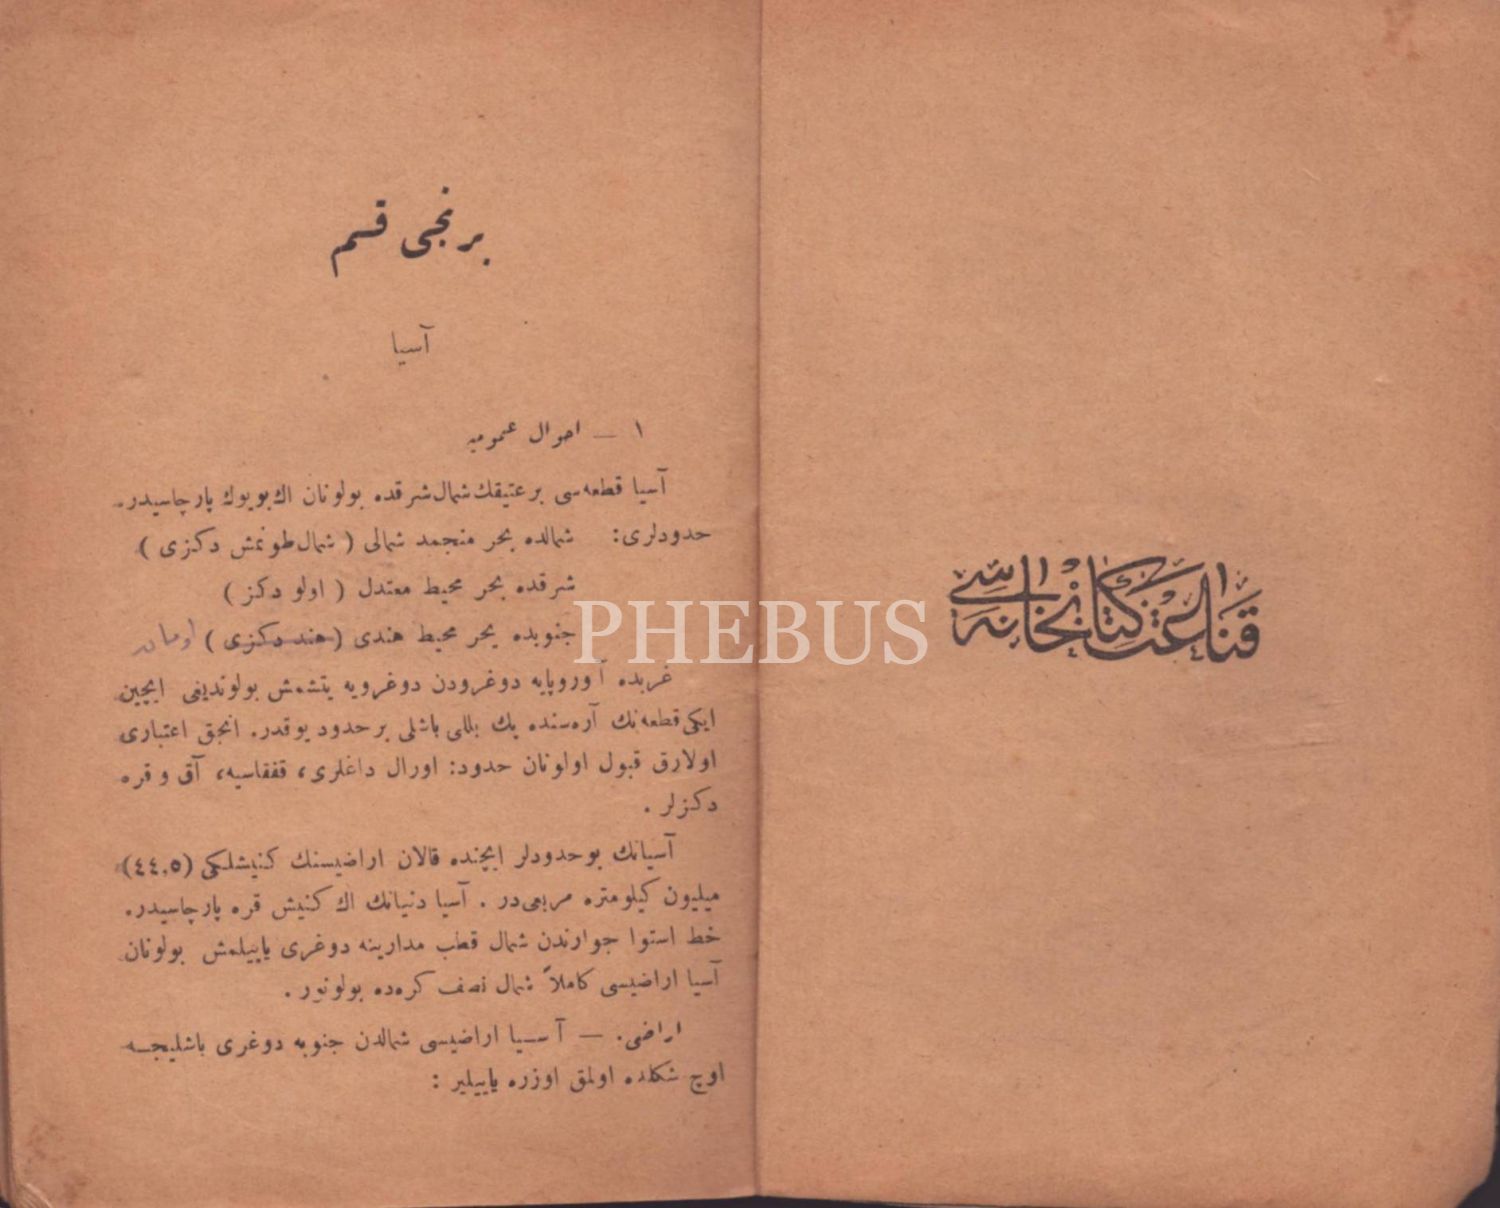 قناعت كتابخانه‌سى
برنجى قسم
آسيا
١ — احوال عموميه
آسيا قطعه‌سى بر عتيقك شمال شرقده بولونان اك بويوك پارچاسيدر.
حدودلرى: شمالده بحر منجمد شمالى ( شمال طوكمش دكزى )
شرقده بحر محيط معتدل ( اولو دكز )
جنوبده بحر محيط هندى ( هند دكزى ) اومان
غربده آوروپايه دوغرودن دوغرويه يتشمش بولونديغى ايچين
ايكى قطعه‌نك آره‌سنده پك بللى باشلى بر حدود يوقدر. انجق اعتبارى
اولارق قبول اولونان حدود: اورال داغلرى، قفقاسيه، آق و قره
دكزلر .
آسيانك بو حدودلر ايچنده قالان اراضيسنك كنيشلكى (٤٤,٥)
ميليون كيلومتره مربعى‌در . آسيا دنيانك اك كنيش قره پارچاسيدر.
خط استوا جوارندن شمال قطب مدارينه دوغرى ياييلمش بولونان
آسيا اراضيسى كاملاً شمال نصف كره‌ده بولونور .
اراضى. — آسيا اراضيسى شمالدن جنوبه دوغرى باشليجه
اوچ شكلده اولمق اوزره ياييلير :
PHEBUS